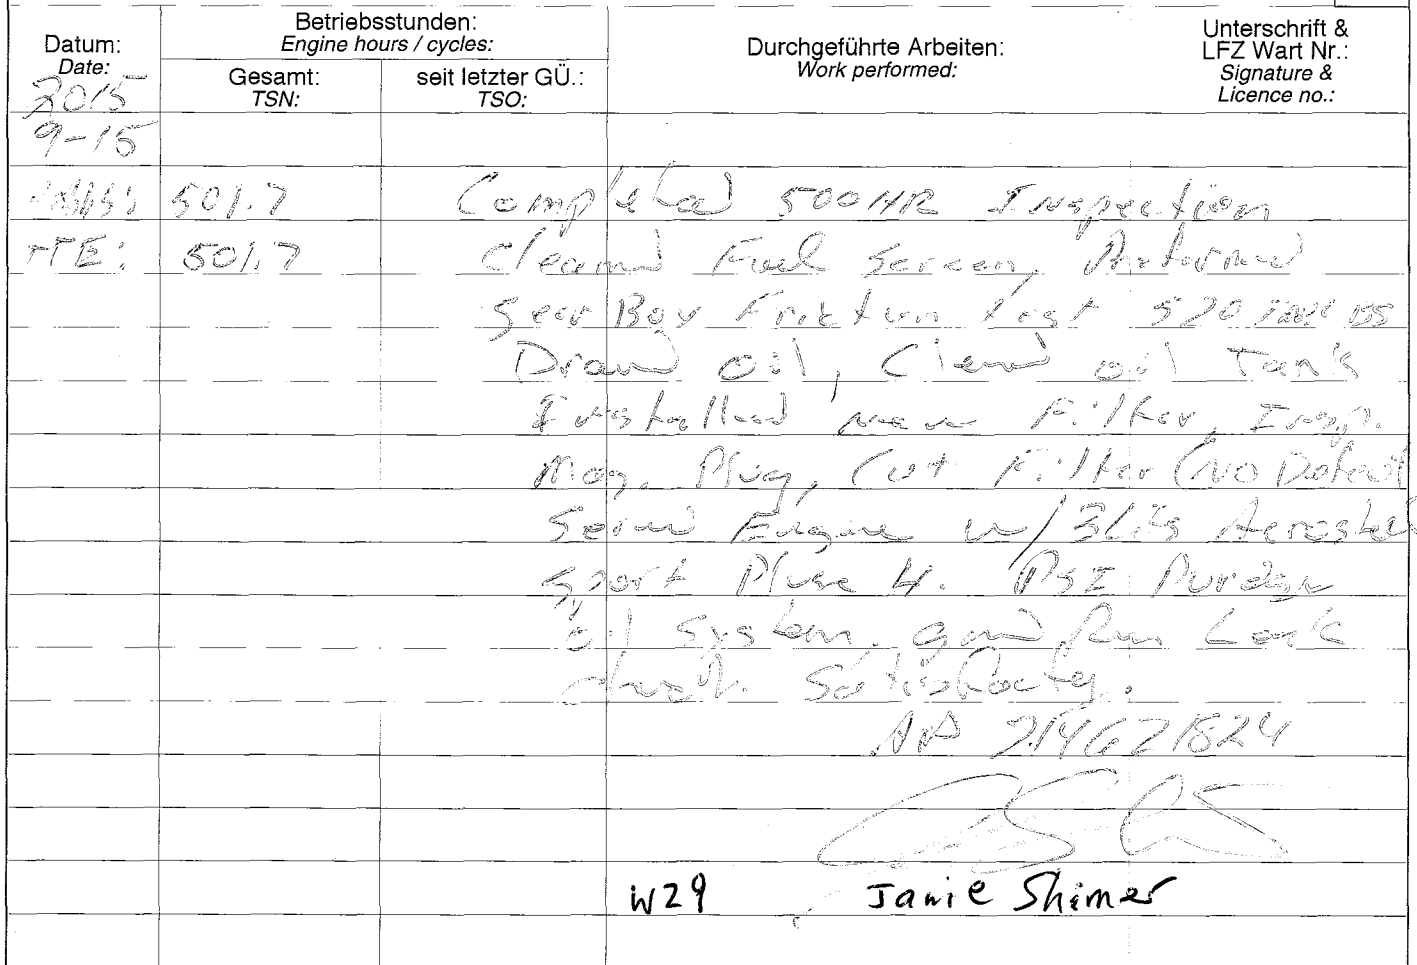 Datum:
Date:
Betriebsstunden:
Engine hours / cycles:
Gesamt:
TSN:
seit letzter GÜ.:
TSO:
Durchgeführte Arbeiten:
Work performed:
Unterschrift &
LFZ Wart Nr.:
Signature &
Licence no.:
2015
9-15
501.7 Completed 500HR Inspection
TTE: 501.7 Cleand Fuel Screen, Preformd
Gear Box Friktun test 520
Drand oil, Clend oil Tank
Installed new Filter, Insp.
Mag. Plug, Cut Filter (No Defect
Servd Engine w/3Lits Aeroshell
Sport Pluse 4. Purdge
oil System, gmd Run Leak
check. Satisfacty.
AP 214621824
W29 Jamie Shimer